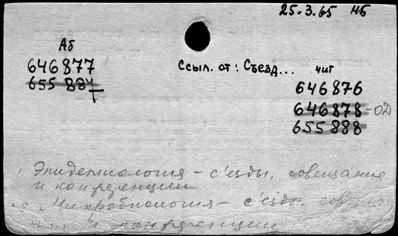 25.3.65 НБ
Аб
646877
655884
Т
Ссыл. от: Съезд...
чит
646876
646878 - ОД
655888
1. Эпидемиология - с'езды, совещания
и конференции
2. Микробиология - с'езды,
и конференции